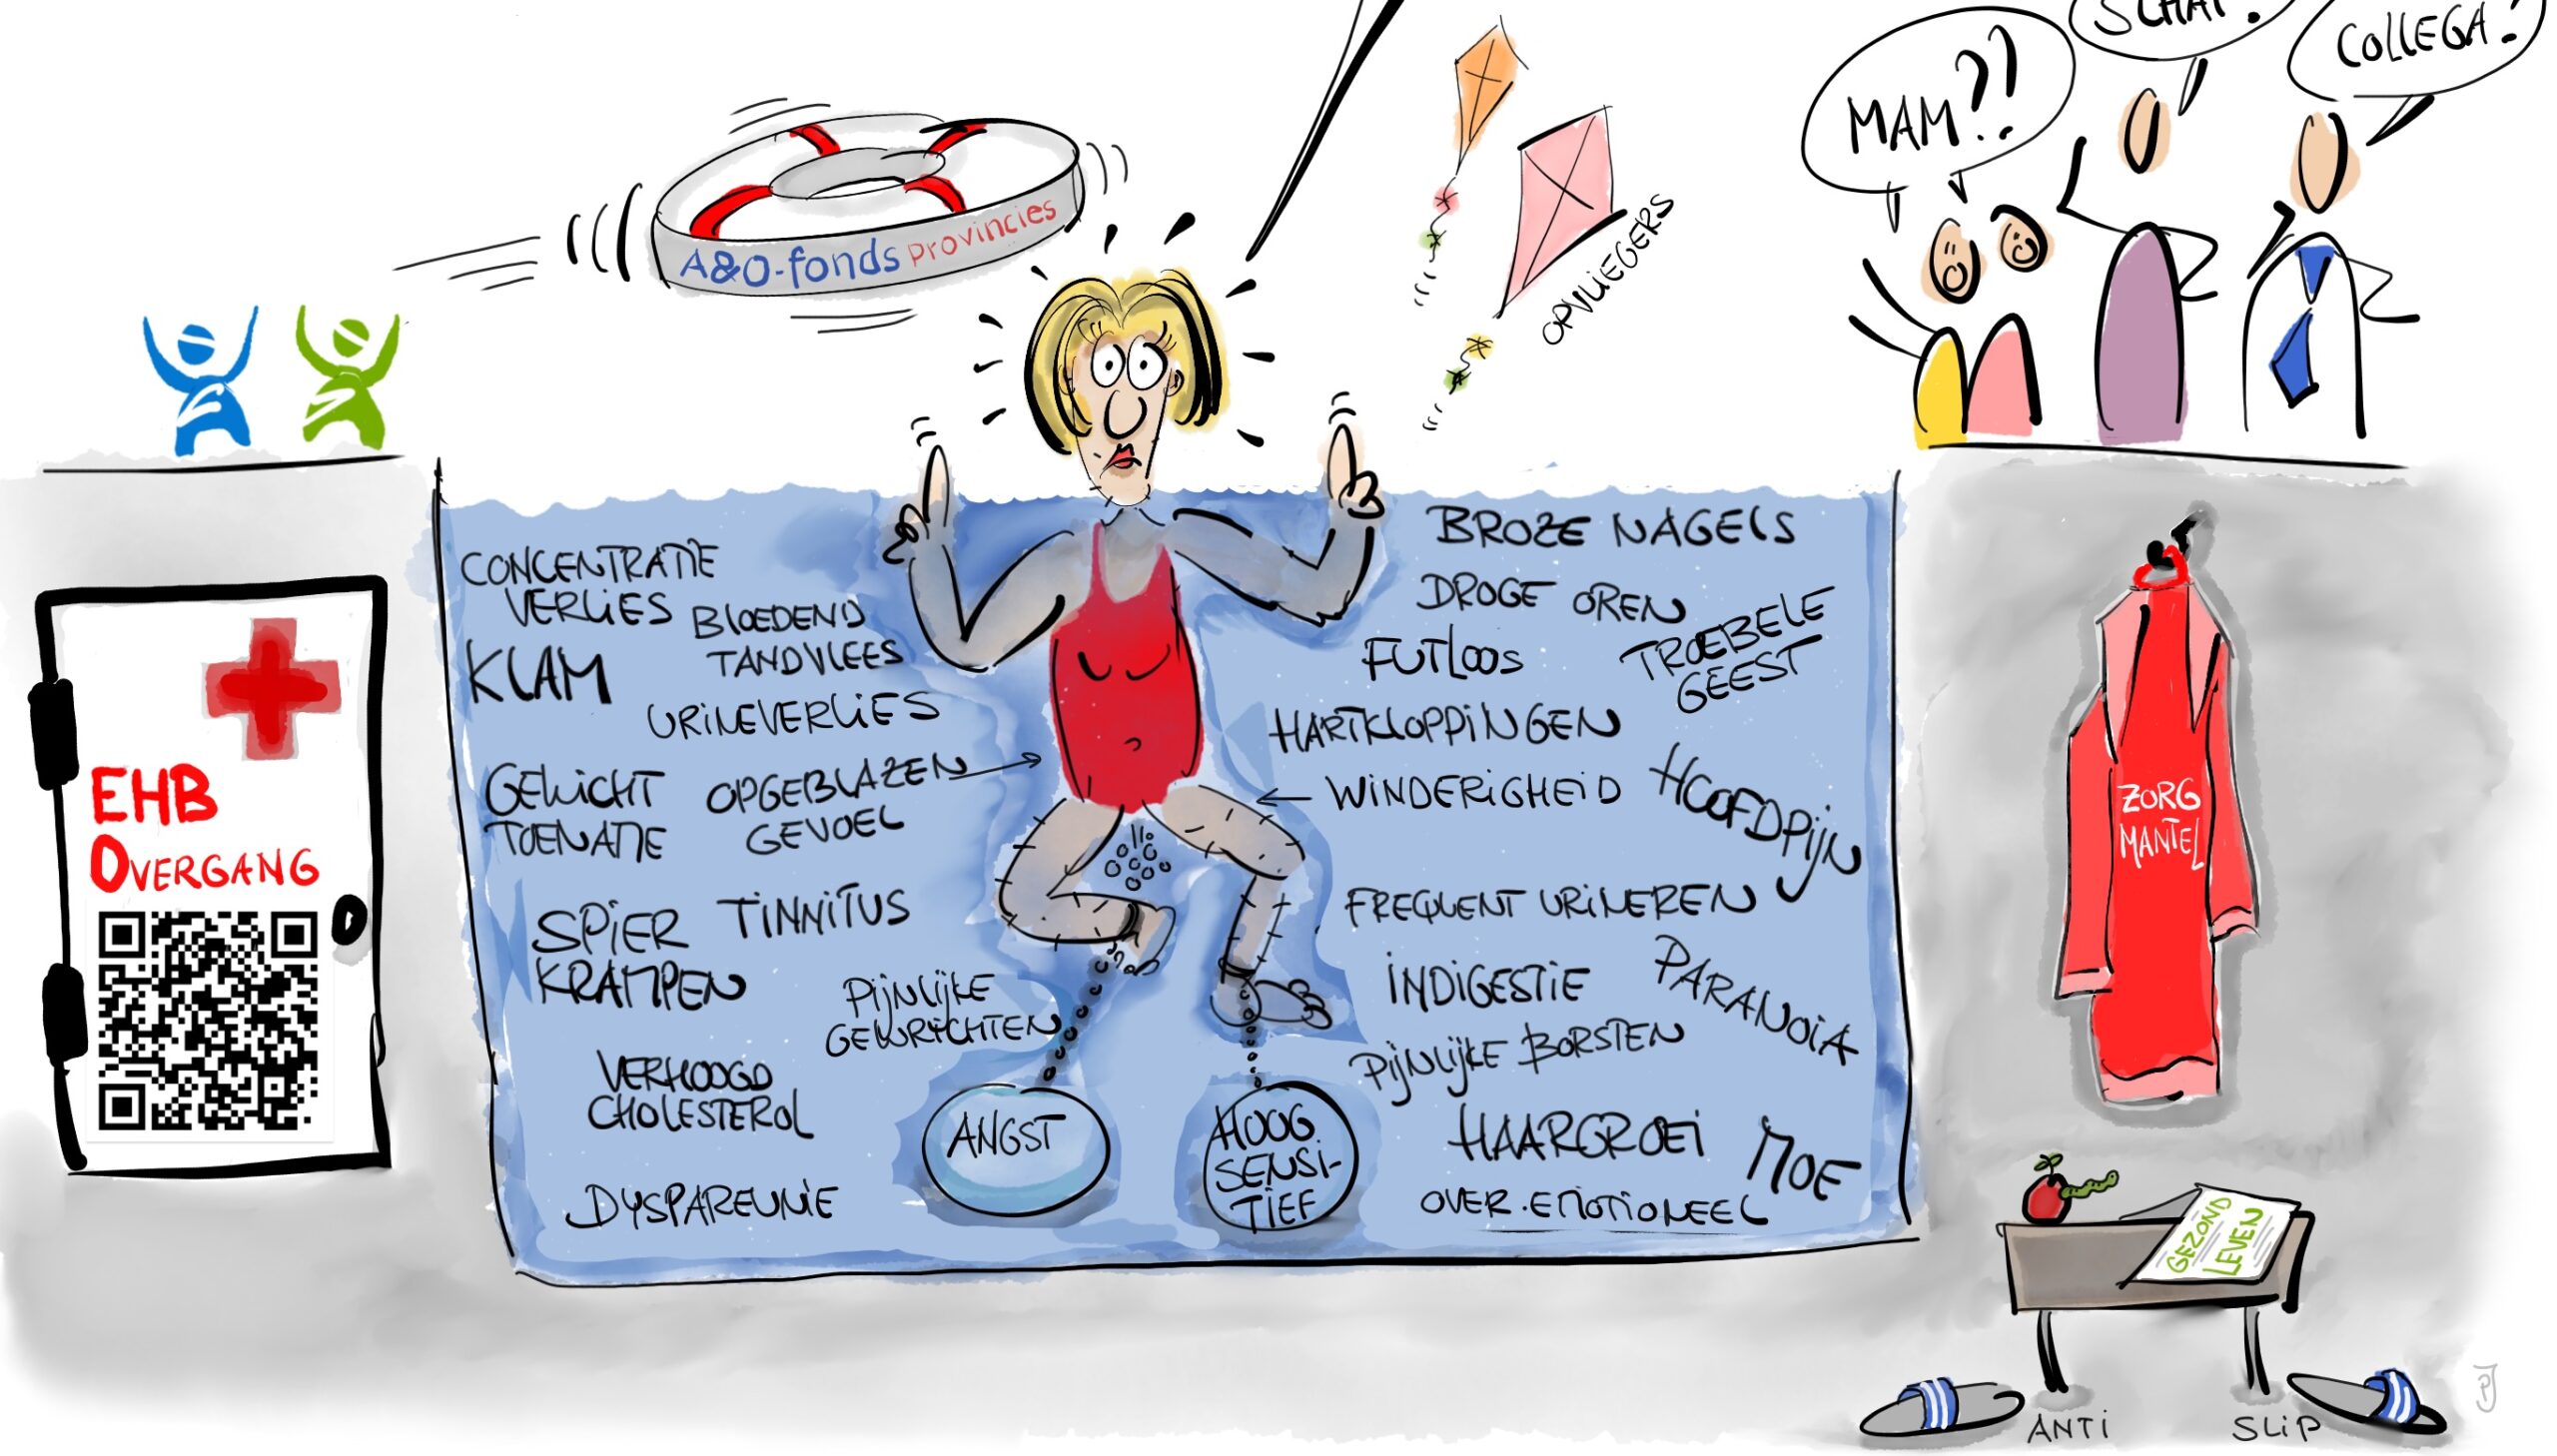 SCHAT?
COLLEGA?
MAM??
A&O-fonds provincies
OPVLIEGERS
CONCENTRATIE
VERLIES
BLOEDEND
TANDVLEES
KLAM
URINEVERLIES
GEWICHT
TOENAME
OPGEBLAZEN
GEVOEL
SPIER
KRAMPEN
TINNITUS
PIJNLIJKE
GEWRICHTEN
VERHOOGD
CHOLESTEROL
DYSPAREUNIE
ANGST
HOOG
SENSI-
TIEF
BROZE NAGELS
DROGE OREN
FUTLOOS
TROEBELE
GEEST
HARTKLOPPINGEN
WINDERIGHEID
HOOFDPIJN
FREQUENT URINEREN
INDIGESTIE
PARANOIA
PIJNLIJKE BORSTEN
HAARGROEI
MOE
OVER-EMOTIONEEL
EHB
OVERGANG
ZORG
MANTEL
GEZOND
LEVEN
ANTI
SLIP
PJ